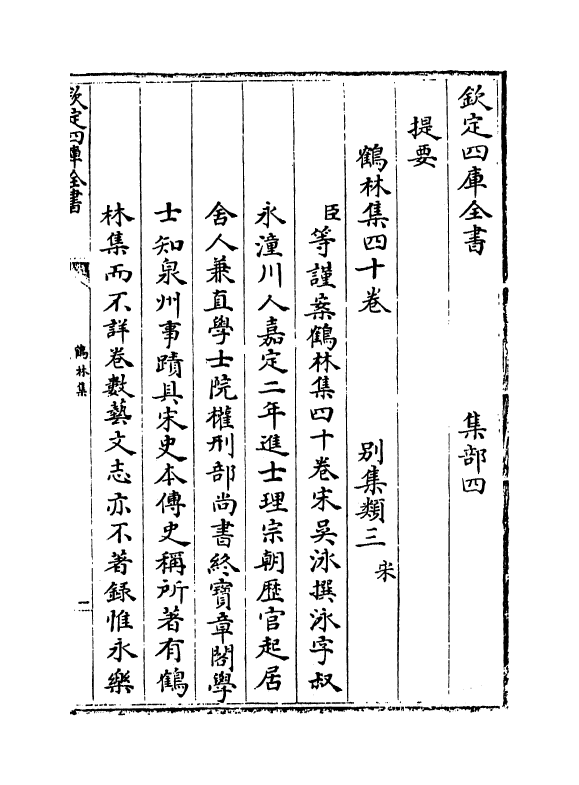 欽定四庫全書　　　　集部四
提要
鶴林集四十卷　　　別集類三宋
臣等謹案鶴林集四十卷宋吳泳撰泳字叔
永潼川人嘉定二年進士理宗朝歷官起居
舍人兼直學士院權刑部尚書終寶章閣學
士知泉州事蹟具宋史本傳史稱所著有鶴
林集而不詳卷數藝文志亦不著録惟永樂
欽定四庫全書
鶴林集
一